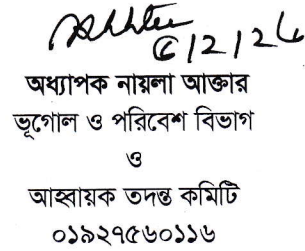 ৫/2/26
অধ্যাপক নায়লা আক্তার
ভূগোল ও পরিবেশ বিভাগ
ও
আহ্বায়ক তদন্ত কমিটি
০১৯২৭৫৬০১১৬